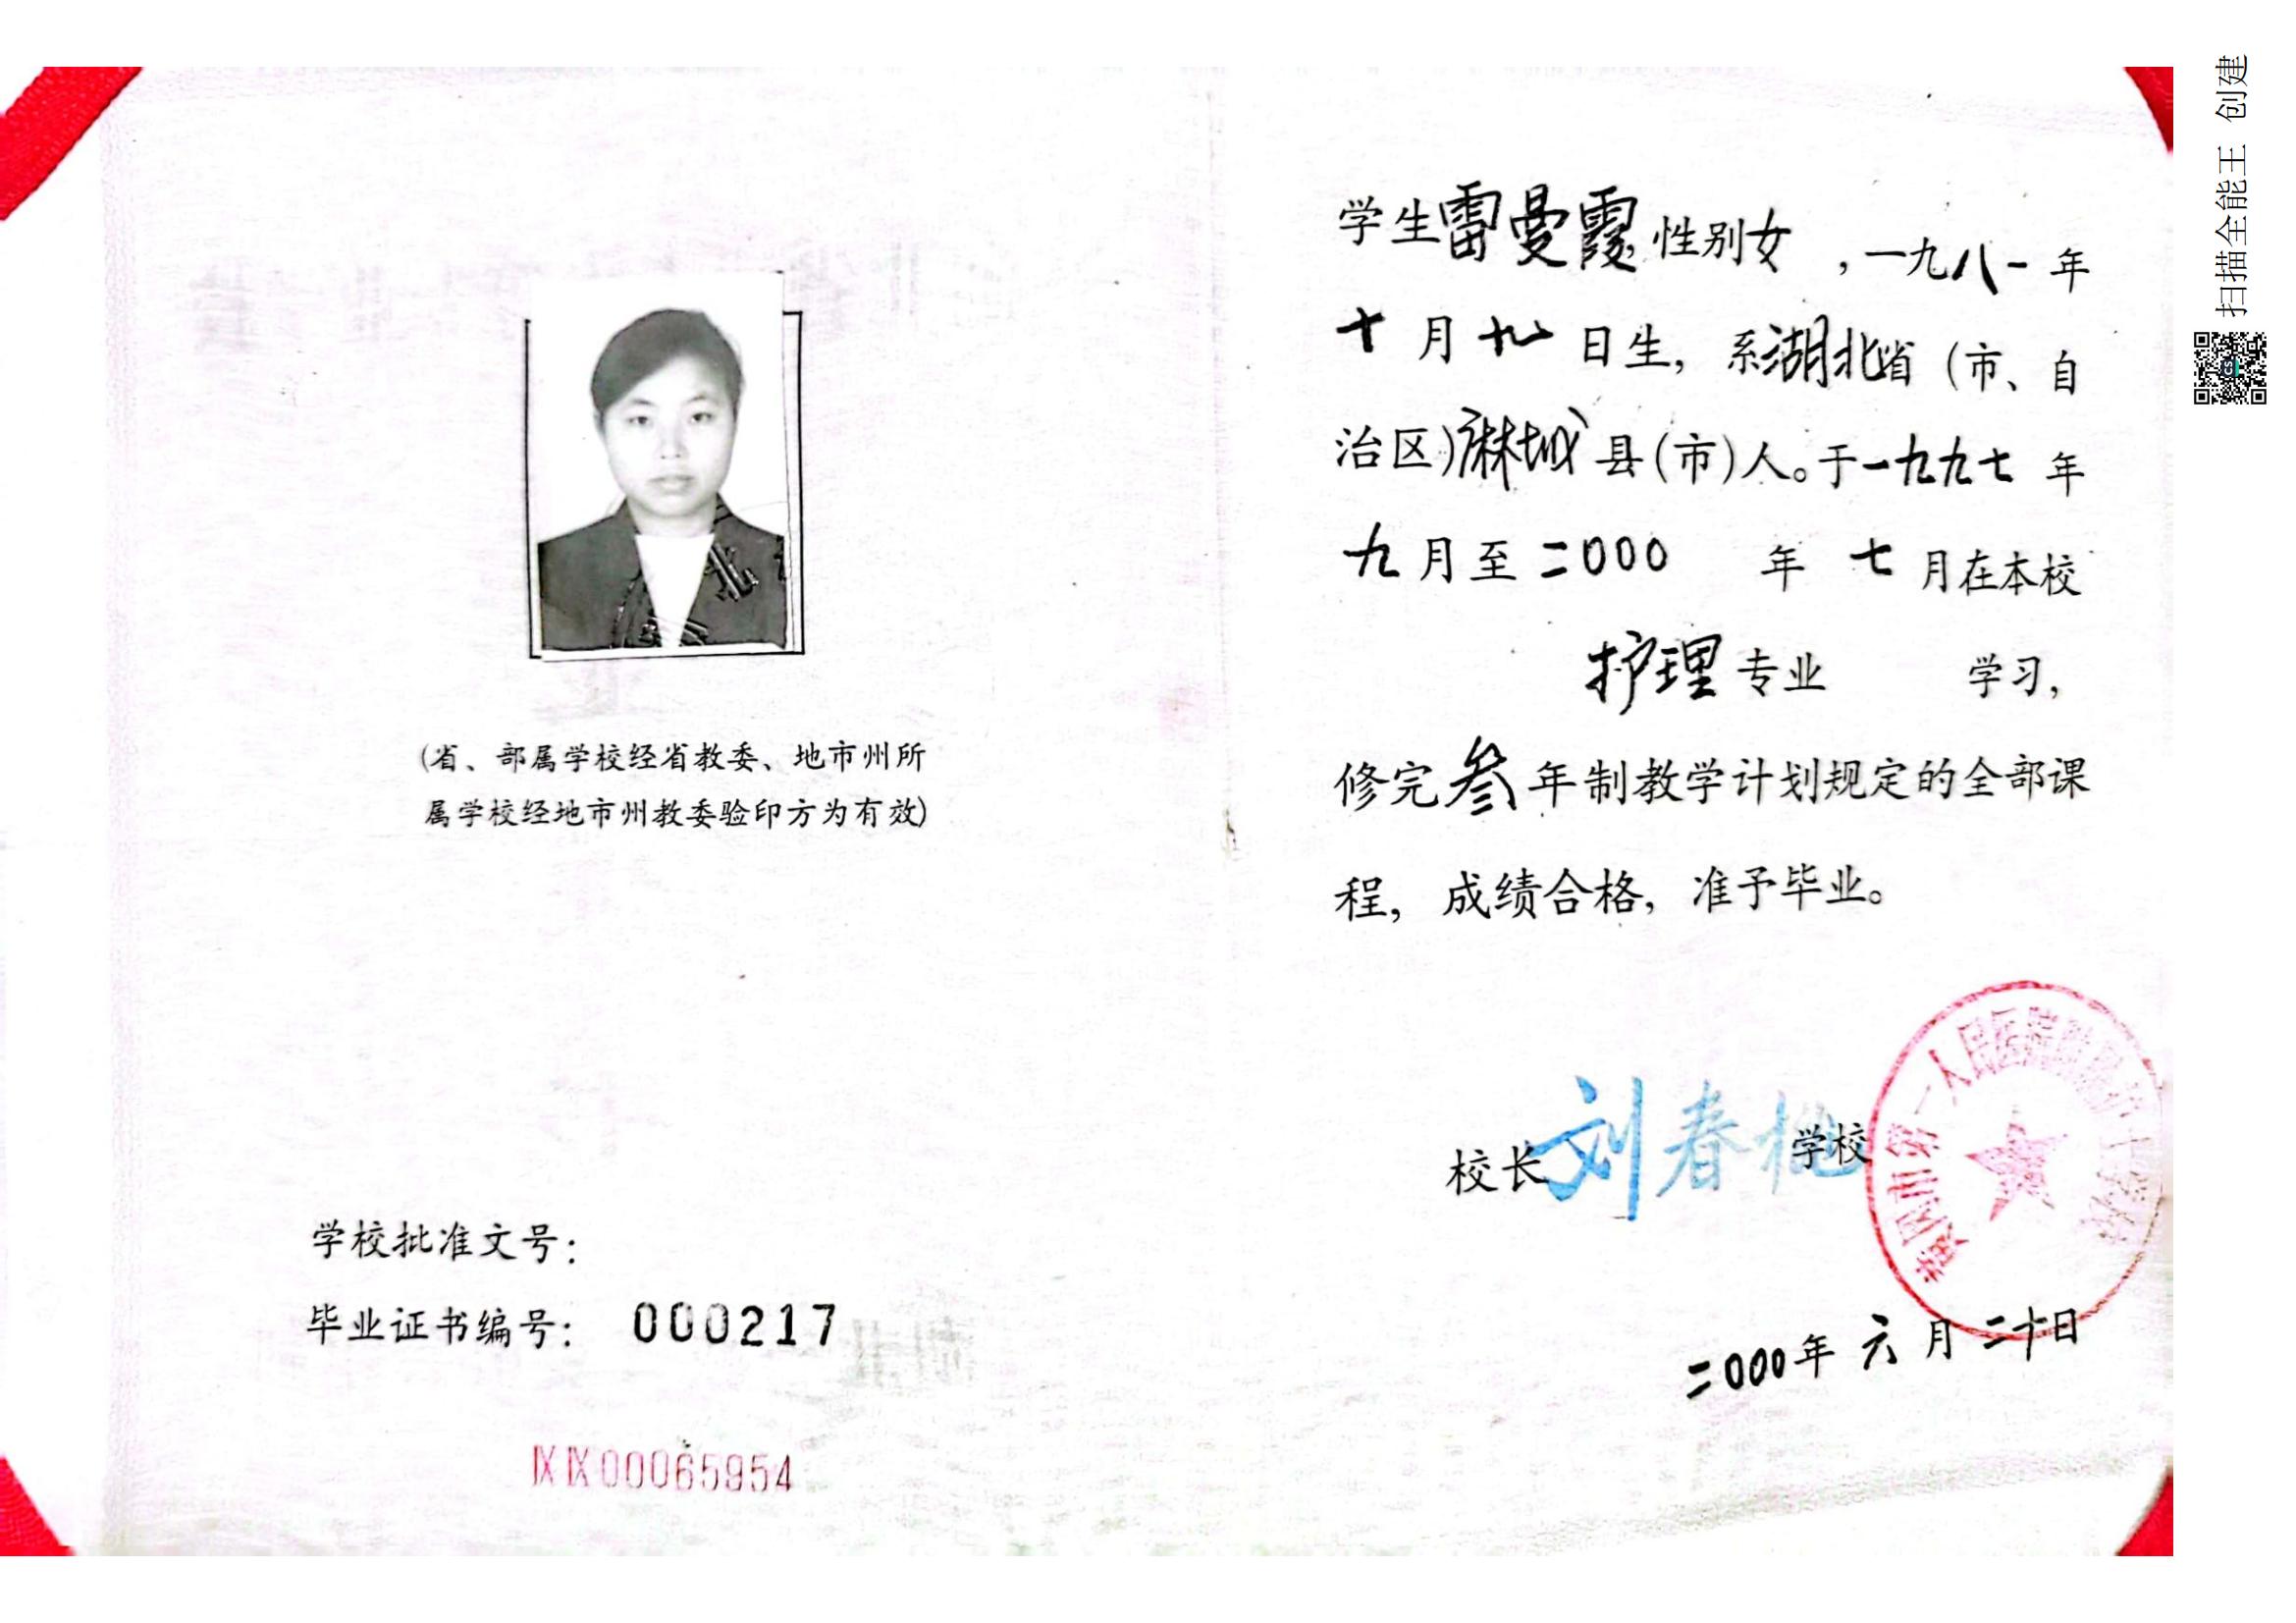 (省、部属学校经省教委、地市州所
属学校经地市州教委验印方为有效)
学校批准文号：
毕业证书编号： 000217
ⅨⅨ00065954
学生雷曼霞 性别女 ，一九八一年
十月十九日生，系湖北省(市、自
治区)麻城县(市)人。于一九九七年
九月至二000年七月在本校
护理专业 学习，
修完叁年制教学计划规定的全部课
程，成绩合格，准予毕业。
校长刘春桃 学校
市第一人民医院附
二000年六月二十日
扫描全能王 创建